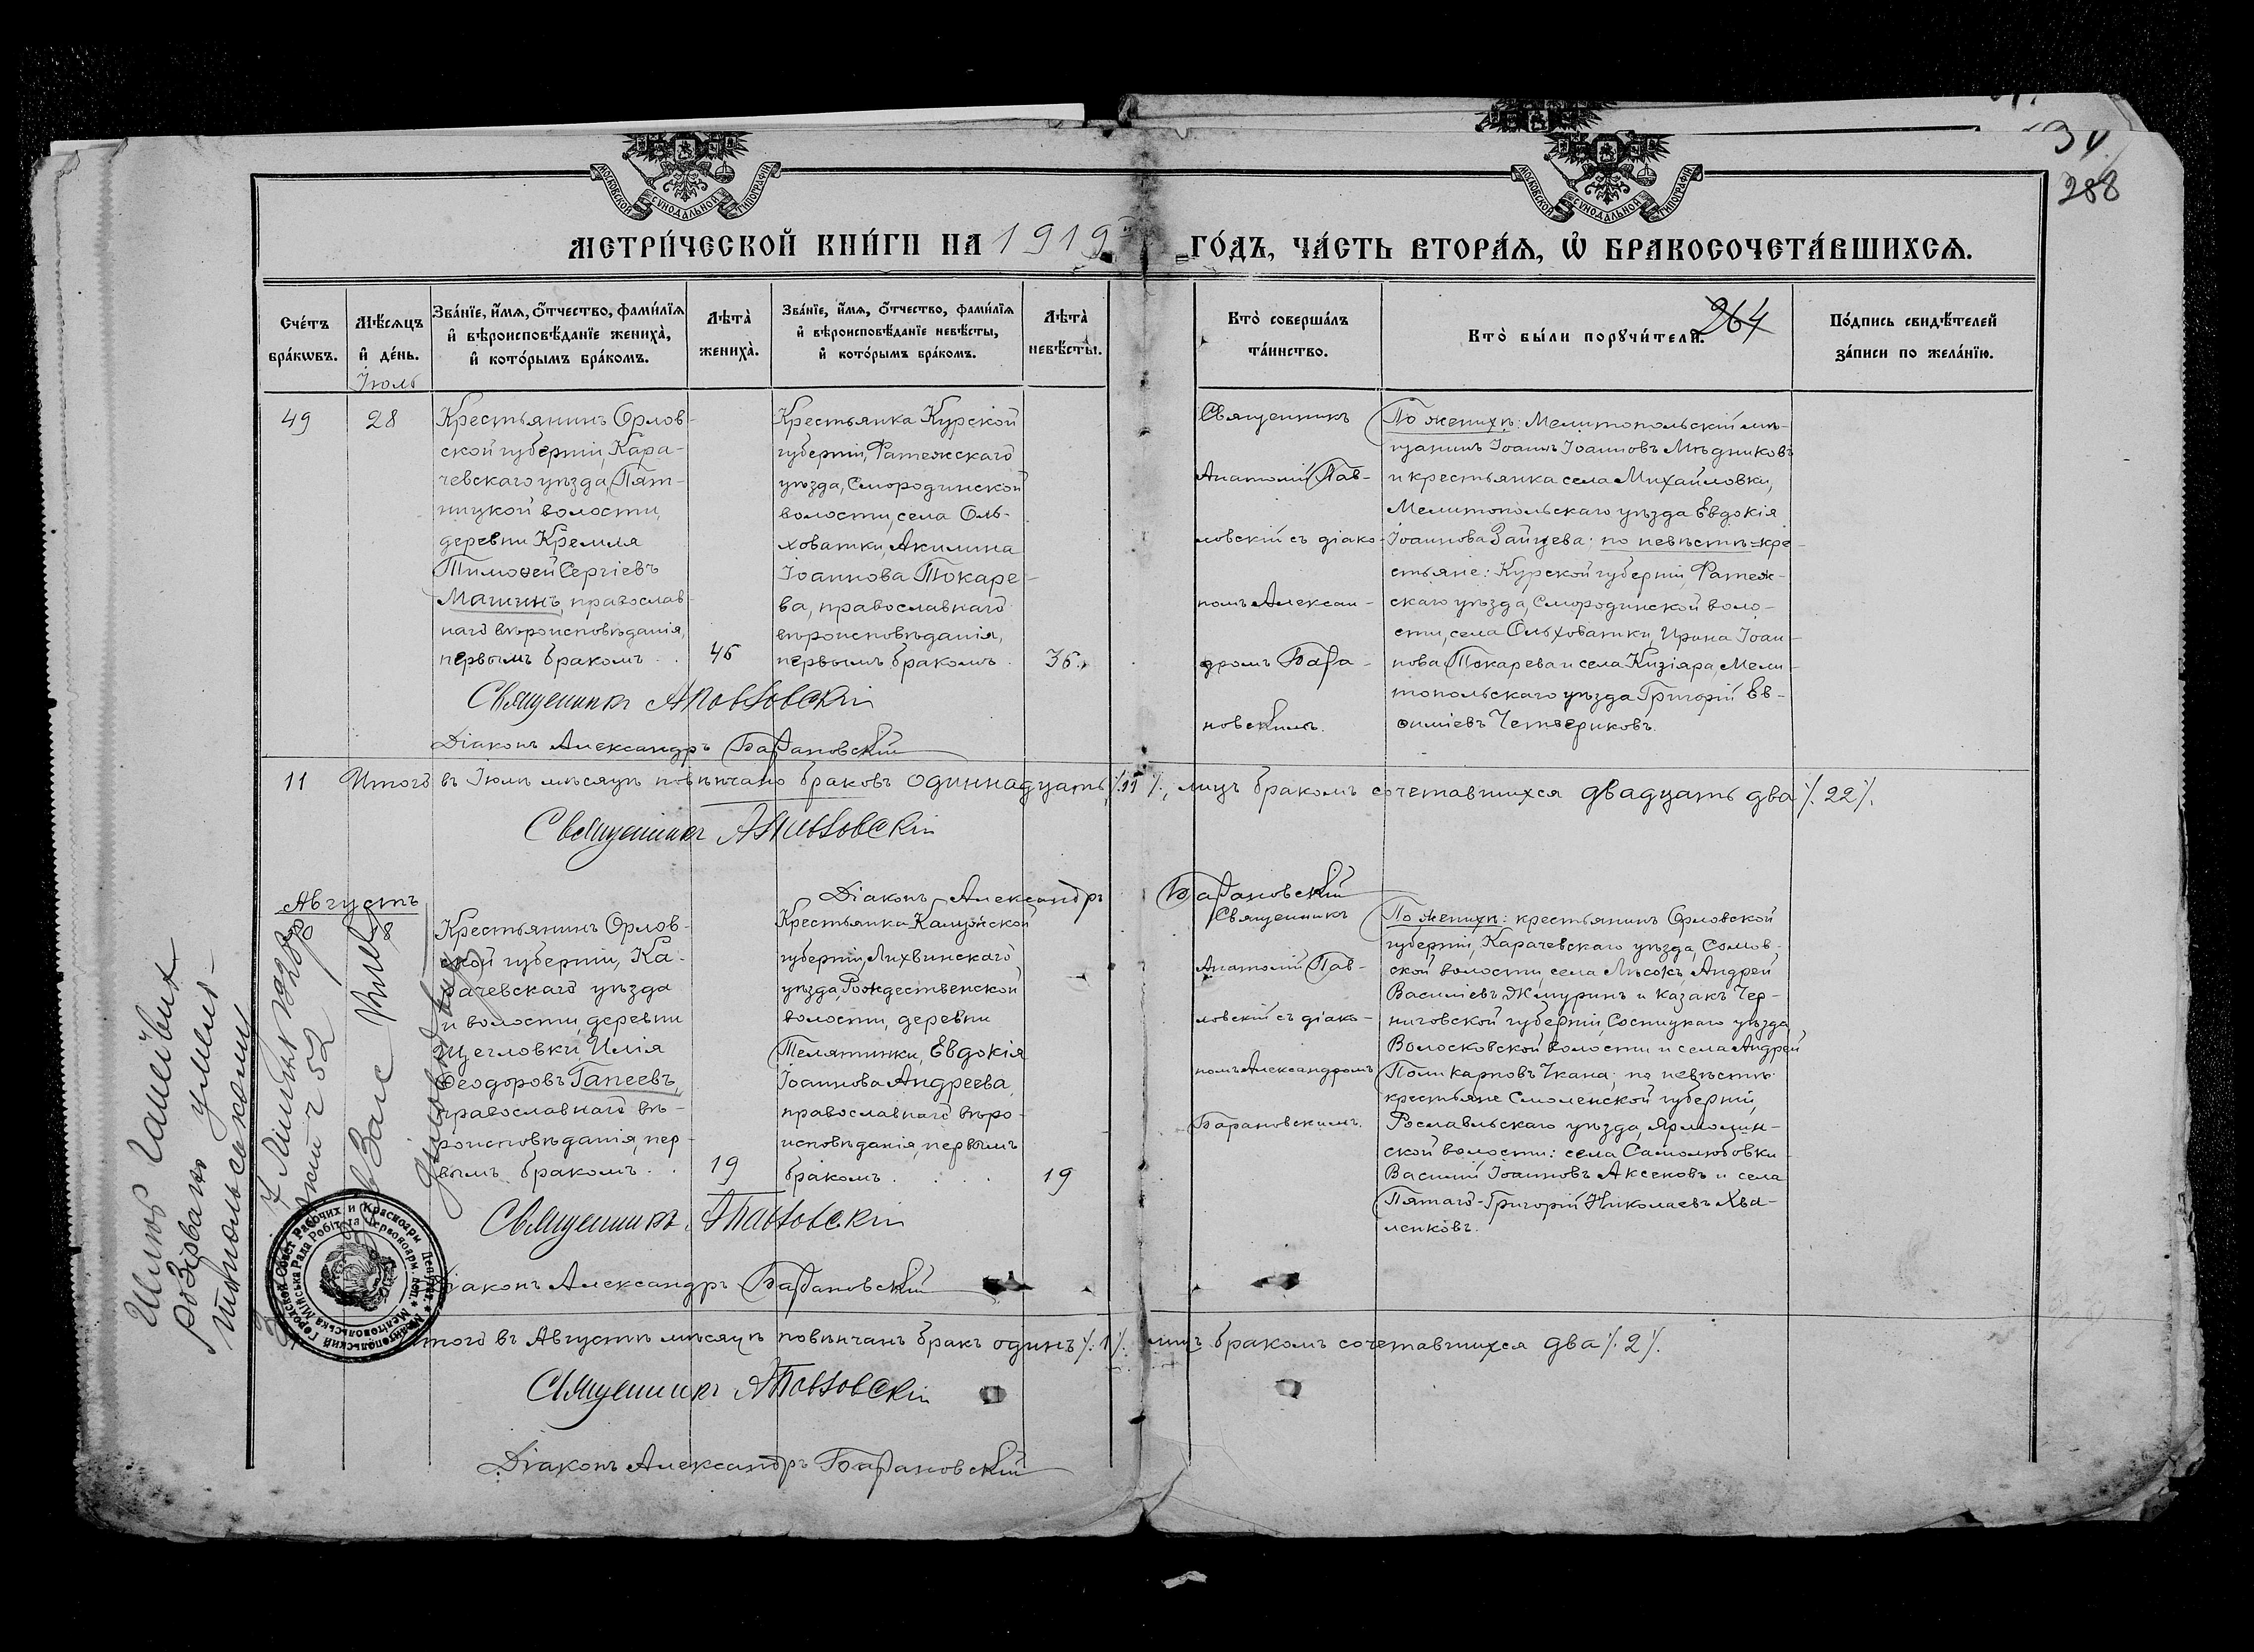 31
288
МОСКОВСКОЙ СѴНОДАЛЬНОЙ ТИПОГРАФІИ
МОСКОВСКОЙ СѴНОДАЛЬНОЙ ТИПОГРАФІИ
МЕТРИ́ЧЕСКОЙ КНИ́ГИ НА 1919 ГО́ДЪ, ЧА́СТЬ ВТОРА́Ѧ, Ѡ҆ БРАКОСОЧЕТА́ВШИХСѦ.
Сче́тъ
бра́кѡвъ.
Мѣ́сѧцъ
и҆ де́нь.
Іюль
Зва́нїе, и҆́мѧ, ѻ҆́тчество, фами́лїѧ
и҆ вѣроисповѣ́данїе жениха̀,
и҆ кото́рымъ бра́комъ.
Лѣта̀
жениха̀.
Зва́нїе, и҆́мѧ, ѻ҆́тчество, фами́лїѧ
и҆ вѣроисповѣ́данїе невѣ́сты,
и҆ кото́рымъ бра́комъ.
Лѣта̀
невѣ́сты.
Кто̀ соверша́лъ
та́инство.
Кто̀ бы́ли порꙋчи́тели.
264
По́дпись свидѣ́телей
за́писи по жела́нїю.
49
28
Крестьянинъ Орлов-
ской губерніи, Кара-
чевскаго уѣзда, Пят-
ницкой волости,
деревни Кремля
Тимоѳей Сергіевъ
Машинъ, православ-
наго вѣроисповѣданія,
первымъ бракомъ . .
46
Крестьянка Курской
губерніи, Фатежскаго
уѣзда, Смородинской
волости, села Оль-
ховатки, Акилина
Іоаннова Токаре-
ва, православнаго
вѣроисповѣданія,
первымъ бракомъ .
36.
Священникъ
Анатолій Пав-
ловскій съ діако-
номъ Алексан-
дромъ Бара-
новскимъ.
По женихѣ: Мелитопольскій мѣ-
щанинъ Іоаннъ Іоанновъ Мѣдниковъ
и крестьянка села Михайловки,
Мелитопольскаго уѣзда Евдокія
Іоаннова Зайцева; по невѣстѣ=кре-
стьяне: Курской губерніи, Фатеж-
скаго уѣзда, Смородинской воло-
сти, села Ольховатки, Ирина Іоан-
нова Токарева и села Кизіяра, Мели-
топольскаго уѣзда Григорій Ев-
ѳиміевъ Четвериковъ.
Священникъ АПавловскій
Діаконъ Александръ Барановскій
11 Итого въ Іюлѣ мѣсяцѣ повѣнчано браковъ одиннадцать /.11 /., лицъ бракомъ сочетавшихся двадцать два /. 22 /.
Священникъ АПавловскій
Діаконъ Александръ Барановскій
Августъ
8
8
Крестьянинъ Орлов-
ской губерніи, Ка-
рачевскаго уѣзда
и волости, деревни
Щегловки, Илія
Ѳеодоровъ Гапеевъ,
православнаго вѣ-
роисповѣданія, пер-
вымъ бракомъ . .
19
Крестьянка Калужской
губерніи, Лихвинскаго
уѣзда, Рождественской
волости, деревни
Телятинки, Евдокія
Іоаннова Андреева,
православнаго вѣро-
исповѣданія, первымъ
бракомъ . . . .
19
Священникъ
Анатолій Пав-
ловскій съ діако-
номъ Александромъ
Барановскимъ.
По женихѣ: крестьянинъ Орловской
губерніи, Карачевскаго уѣзда, Сомов-
ской волости, села Лѣсокъ, Андрей
Василіевъ Жмуринъ и казакъ Чер-
ниговской губерніи, Сосницкаго уѣзда
Волосковской волости и села Андрей
Поликарповъ Ткана; по невѣстѣ
крестьяне Смоленской губерніи,
Рославльскаго уѣзда,
ской волости: села Самолюбовки
Василій Іоанновъ Аксеновъ и села
Пятаго - Григорій Николаевъ Хва-
ленковъ.
Священникъ АПавловскій
Діаконъ Александръ Барановскій
Итого въ Августѣ мѣсяцѣ повѣнчанъ бракъ одинъ /.1 /., лицъ бракомъ сочетавшихся два /. 2 /.
Священникъ АПавловскій
Діаконъ Александръ Барановскій
Шлюб
Розірвано
7 1928р
Мелитопольский Городской Совет Рабочих и Красноарм. Депутат.
Мелітопольська Міська Рада Робітн. та Червоноарм. деп.